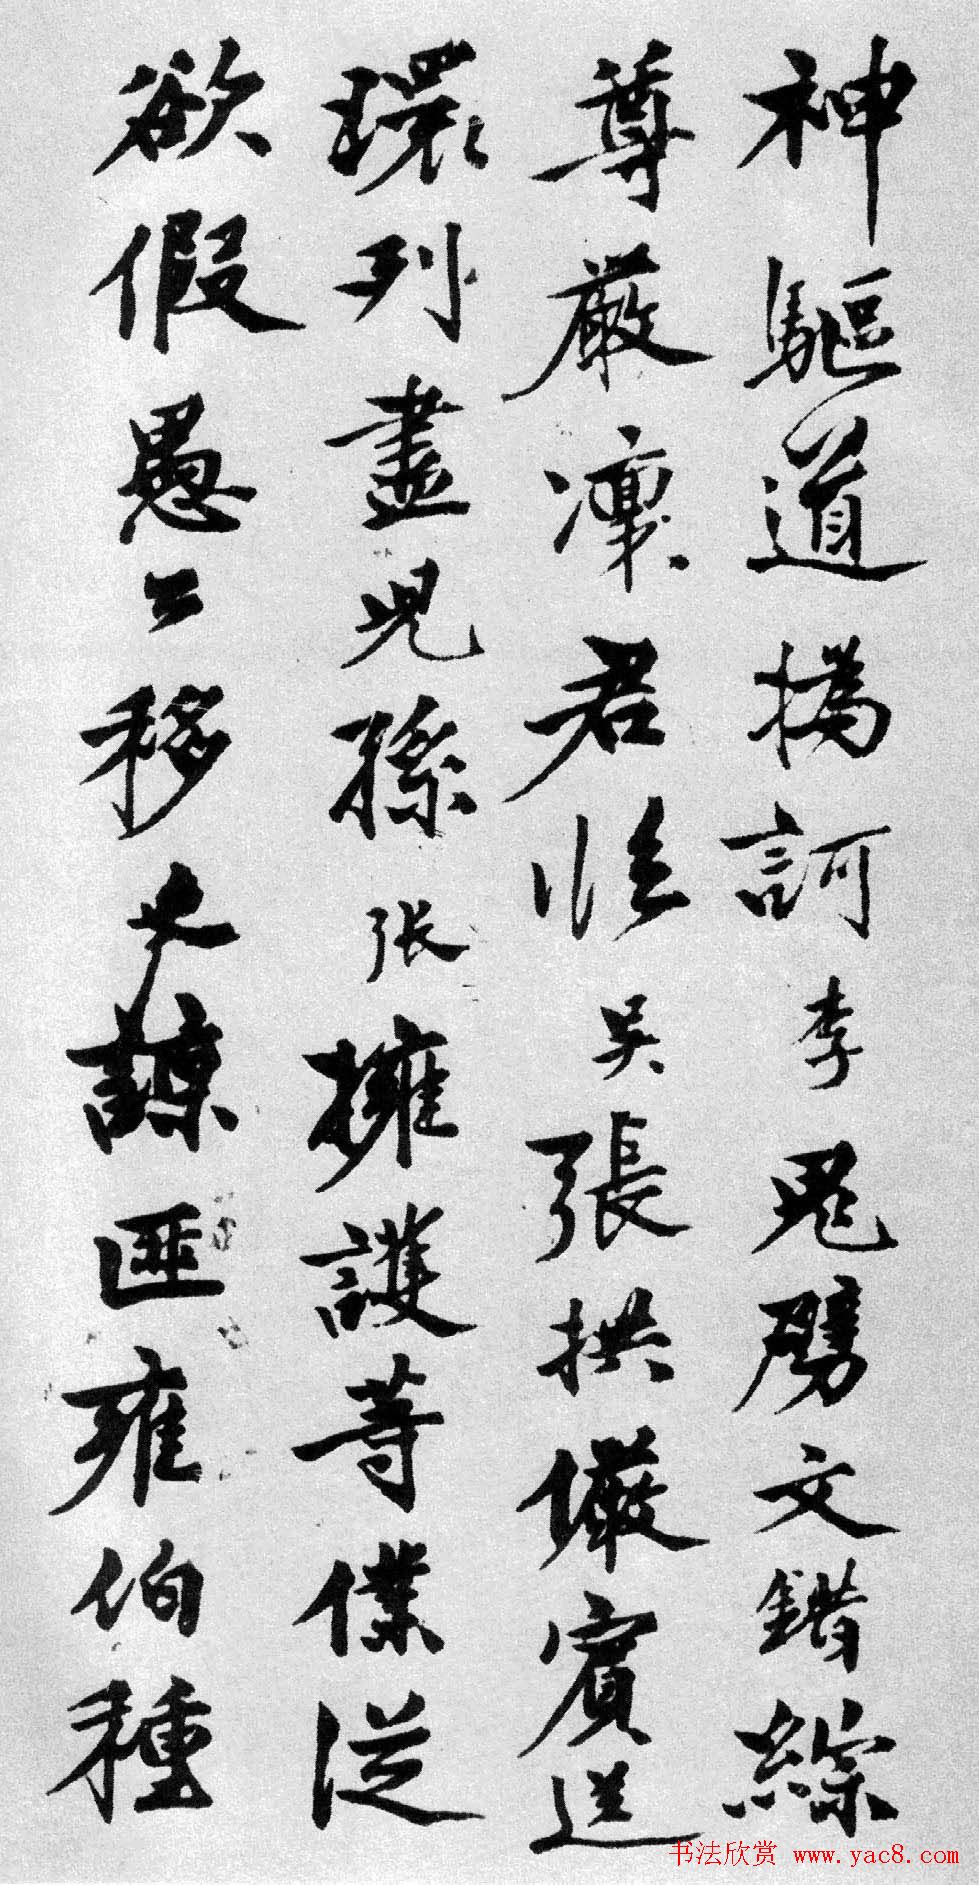 神驅道撝訶李鬼劈文錯綜
尊嚴凜君臨吴張拱儼賓送
環列盡兒孫张擁護等僕從
欲假愚公移尹諫匪雍伯種
书法欣赏 www.yac8.com